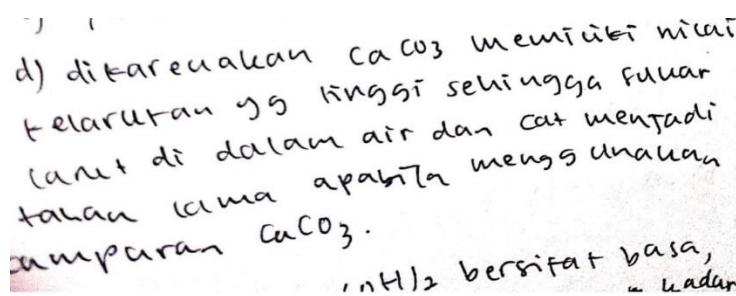 d) dikarenakan CaCO3 memiliki nilai
kelarutan yg tinggi sehingga sukar
larut di dalam air dan cat menjadi
tahan lama apabila menggunakan
campuran CaCO3.
(OH)2 bersifat basa,
kadar